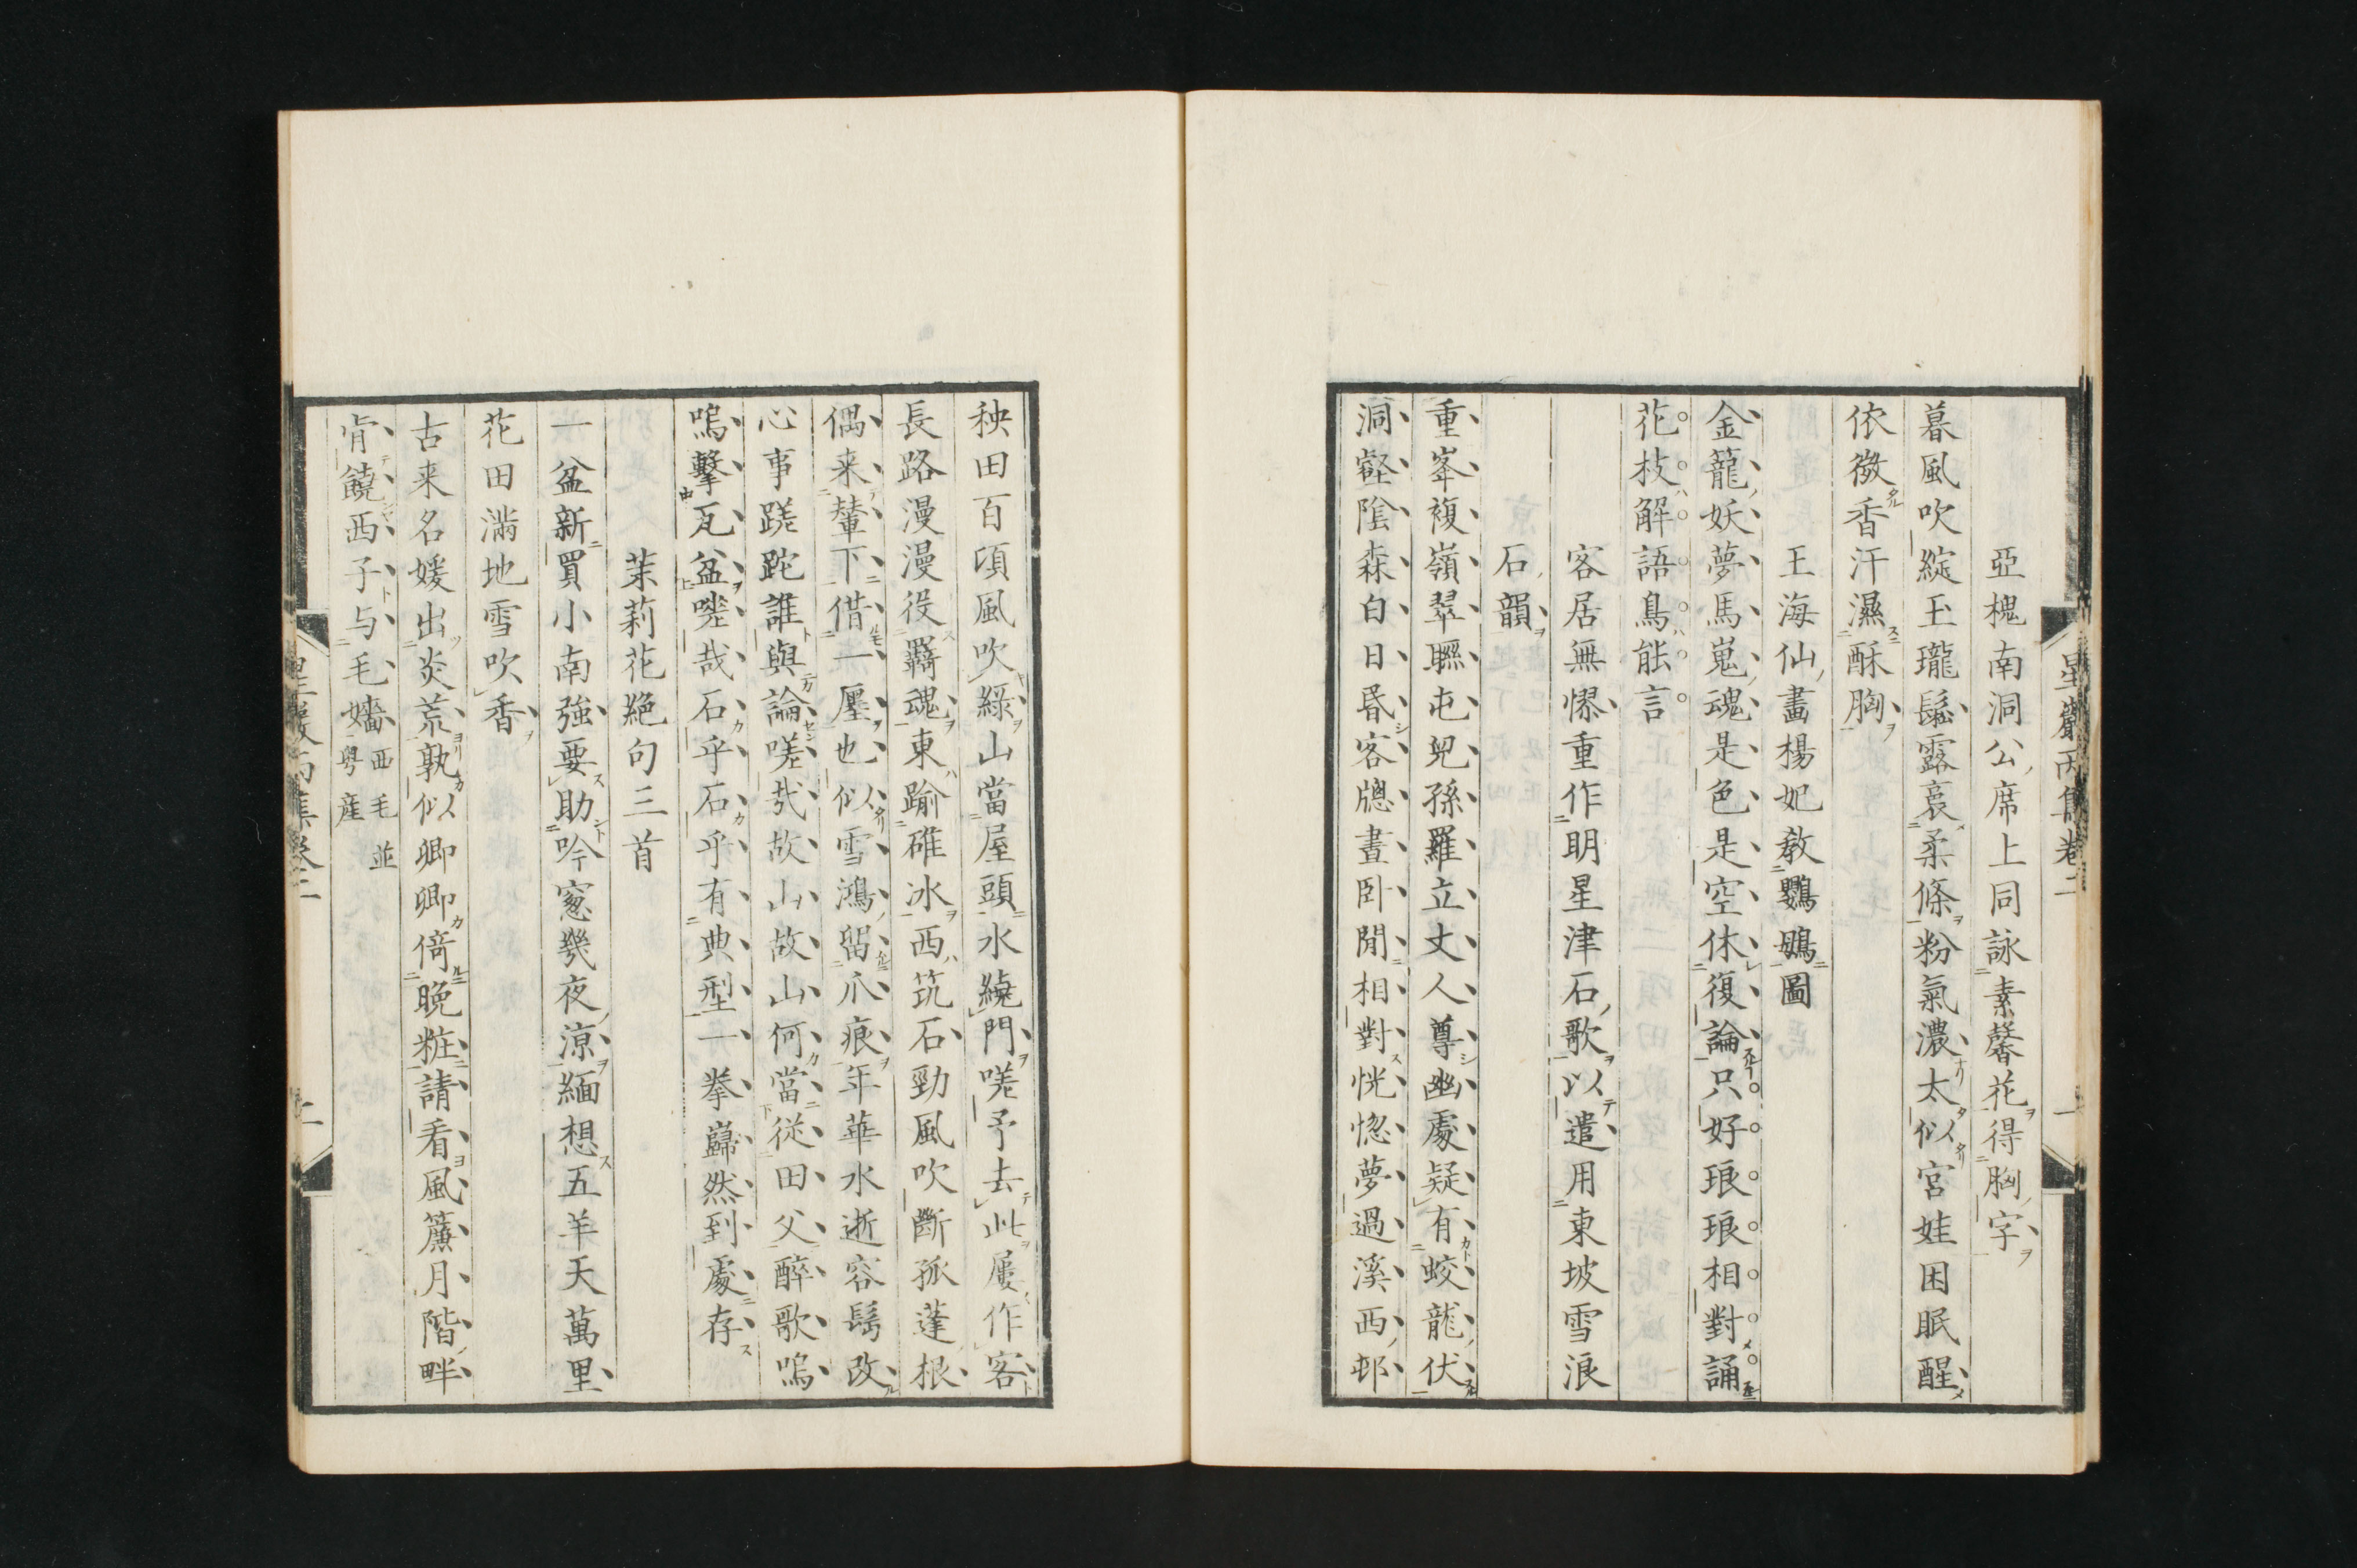 亞槐南洞公席上同詠素馨花得胸字
暮風吹綻玉瓏鬆露裛柔條粉氣濃太似宮娃困眠醒
依微香汗濕酥胸
王海仙畫楊妃敎鸚鵡圖
金籠妖夢馬嵬魂是色是空休復論只好琅琅相對誦
花枝解語鳥能言
客居無憀重作明星津石歌以遣用東坡雪浪
石韻
重峯複嶺翠聯屯兒孫羅立丈人尊幽處疑有蛟龍伏
洞壑陰森白日昏客牕晝臥閒相對恍惚夢過溪西邨
星巖丙集卷二
秧田百頃風吹綠山當屋頭水繞門嗟予去此屢作客
長路漫漫役羇魂東踰碓冰西筑石勁風吹斷孤蓬根
偶来輦下借一廛也似雪鴻留爪痕年華水逝容髩改
心事蹉跎誰與論嗟哉故山故山何當從田父醉歌嗚
嗚擊瓦盆嗟哉石乎石乎有典型一拳巋然到處存
茉莉花絕句三首
一盆新買小南強要助吟窻幾夜涼緬想五羊天萬里
花田滿地雪吹香
古来名媛出炎荒孰似卿卿倚晚粧請看風簾月階畔
肯饒西子与毛嬙西毛並粤產
星巖丙集卷二
二